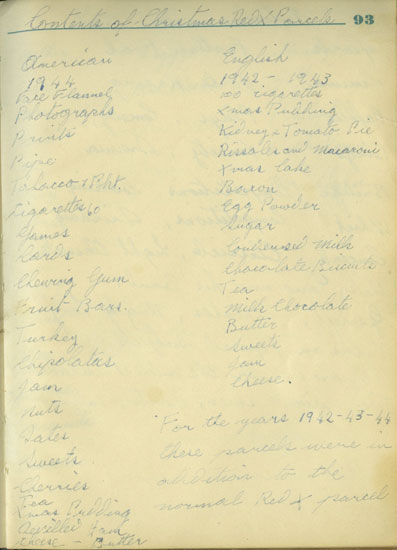 Contents of Christmas Red X Parcels 93
American
1944
Face Flannel
Photographs
Prints
Pipe
Tobacco & Pkt.
Cigarettes 60
Games
Cards
Chewing Gum
Fruit Bars.
Turkey
Chipolatas
Jam
Nuts
Dates
Sweets
Cherries
Tea
Xmas Pudding
Devilled Ham
Cheese - Butter
English
1942 - 1943
100 cigarettes
Xmas Pudding
Kidney & Tomato Pie
Rissoles and Macaroni
Xmas Cake
Bacon
Egg Powder
Sugar
Condensed Milk
Chocolate Biscuits
Tea
Milk Chocolate
Butter
Sweets
Jam
Cheese.
For the years 1942-43-44
these parcels were in
addition to the
normal Red X parcel